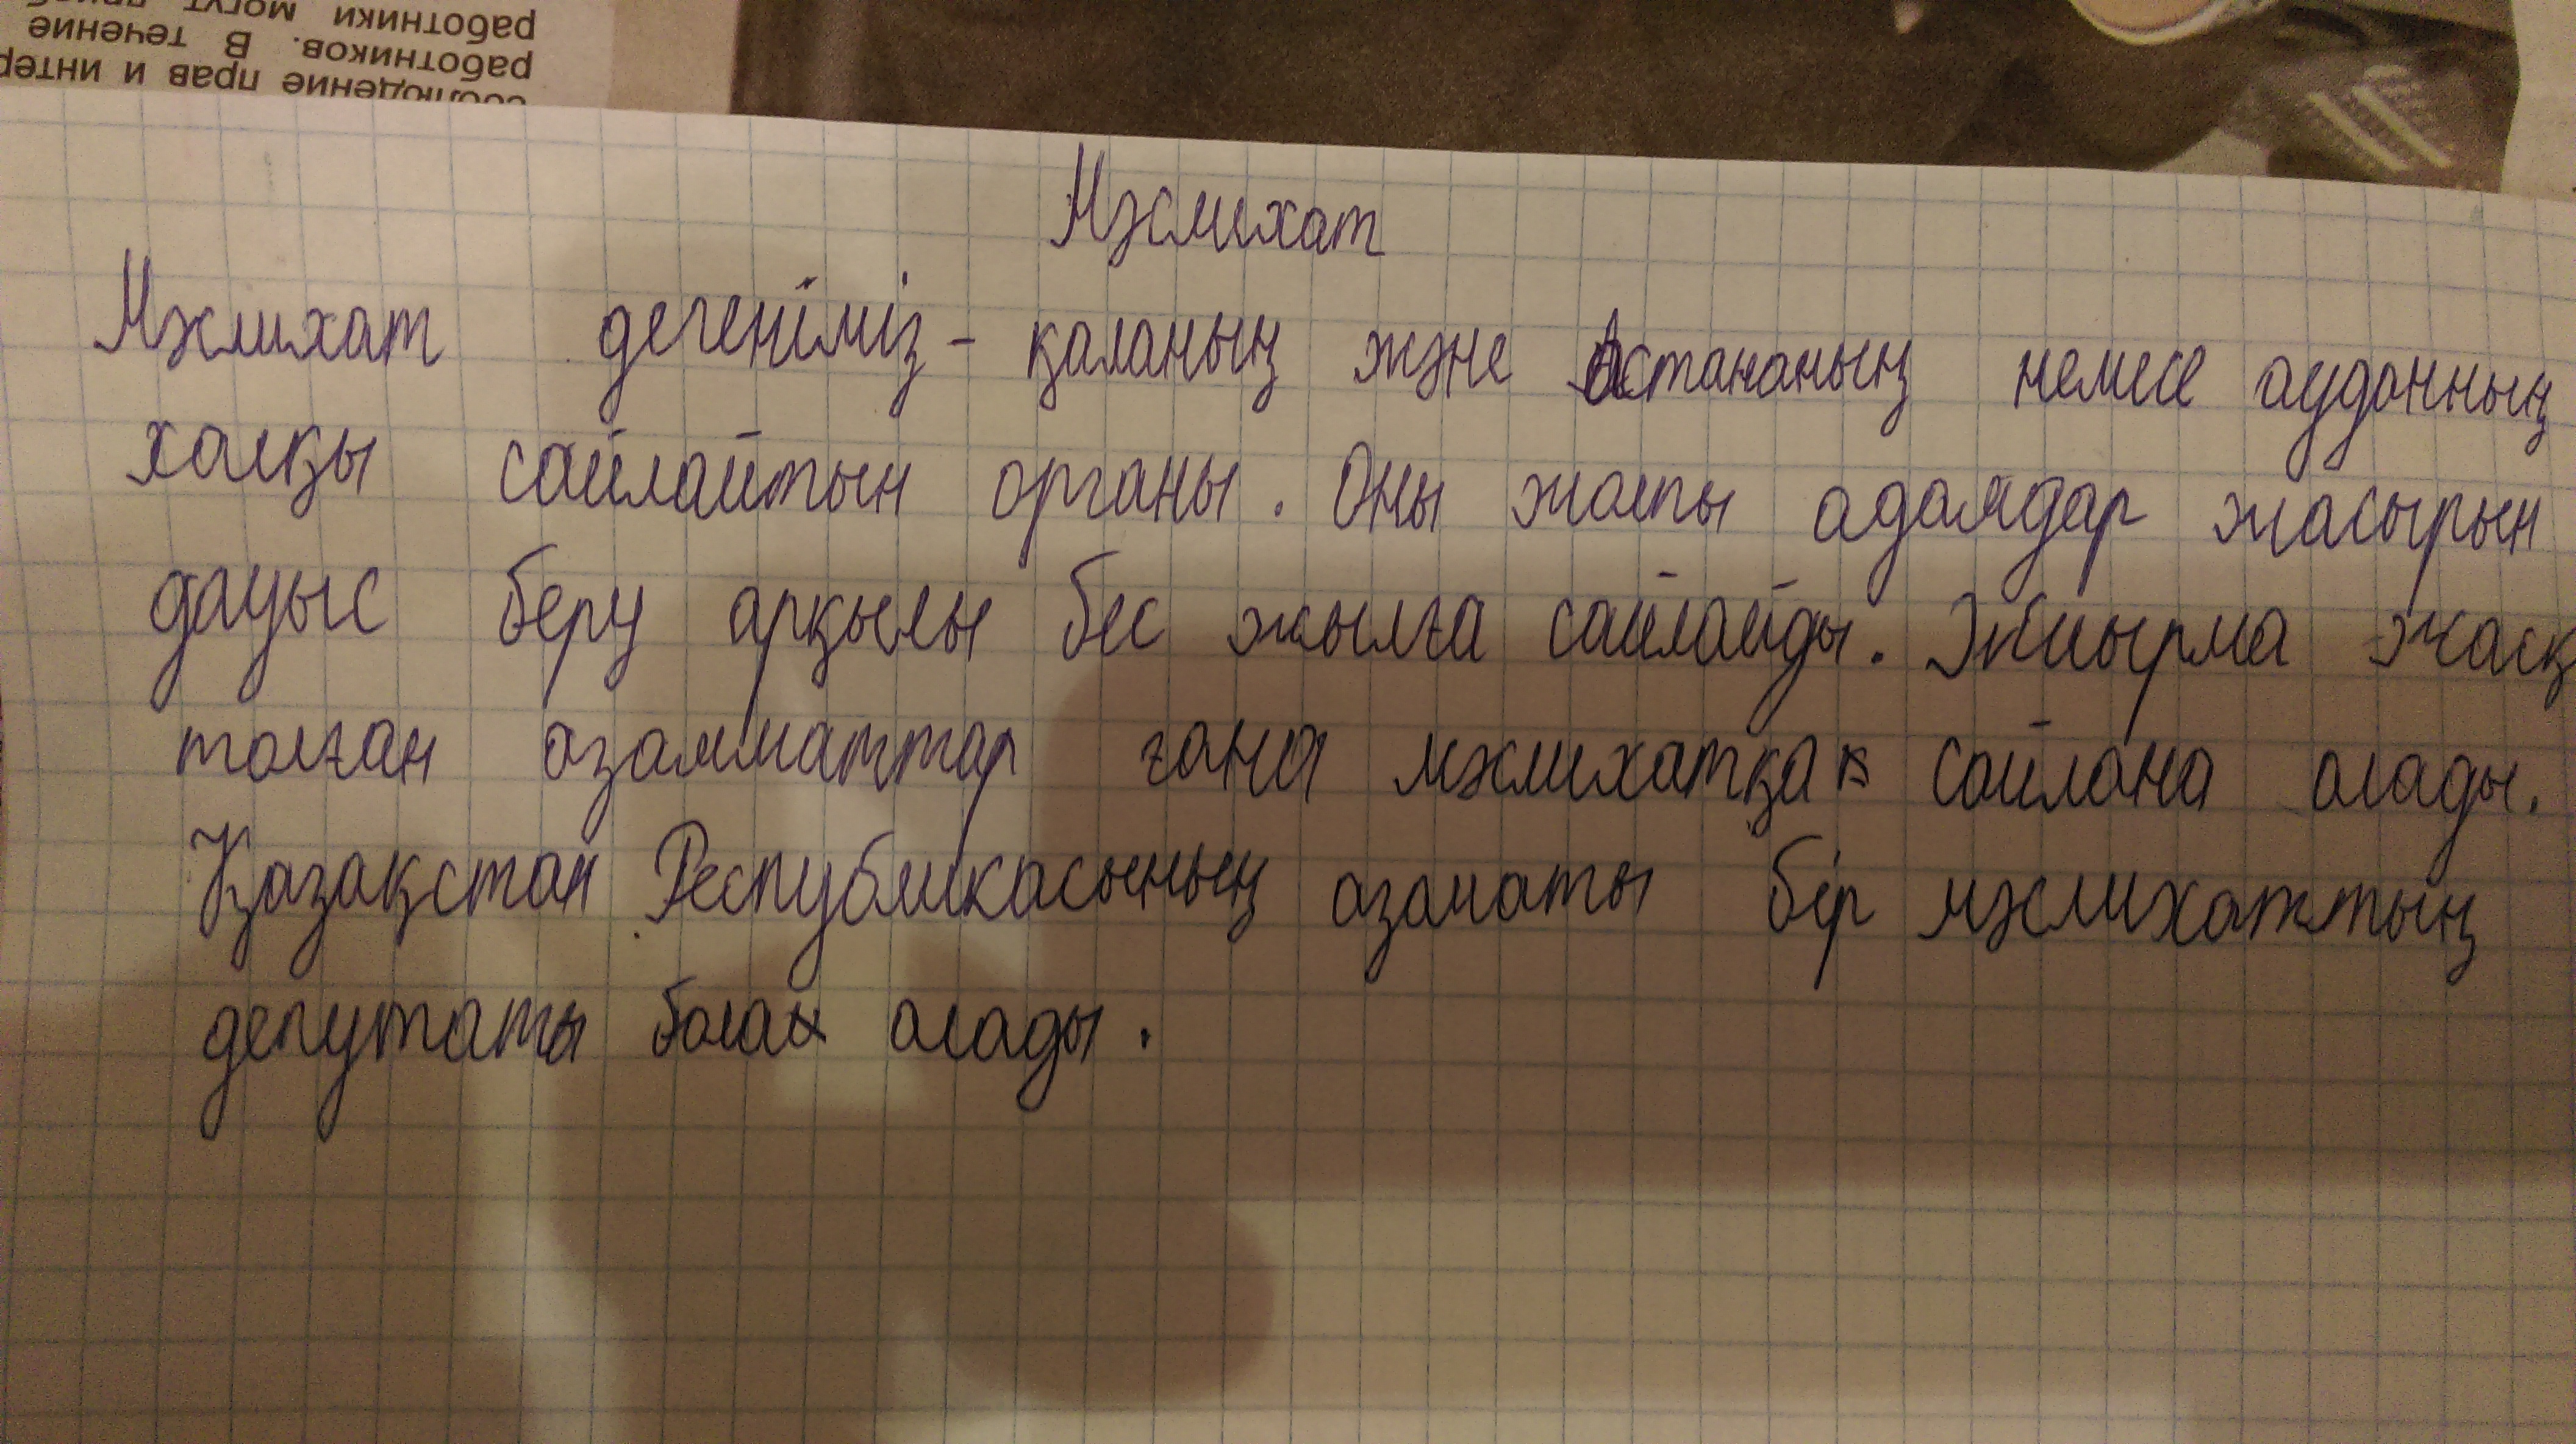 соблюдение прав и интер
работников. В течение
работники могут
Мәслихат
Мәслихат дегеніміз - қаланың және Астананың немесе ауданның
халқы сайлайтын органы. Оны жалпы адамдар жасырын
дауыс беру арқылы бес жылға сайлайды. Жиырма жасқ
толған азамматтар ғана мәслихатқа сайлана алады.
Қазақстан Республикасының азаматы бір мәслихаттың
депутаты бола алады.